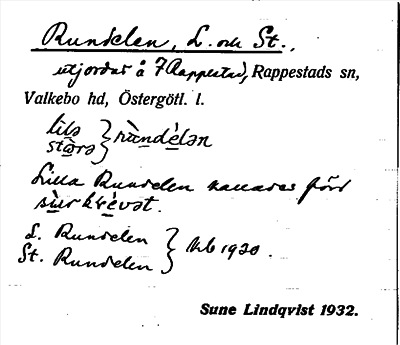 Rundelen, L. och St.,
utjordar å 7 Rappestad, Rappestads sn,
Valkebo hd, Östergötl. l.
lilə
stərə } rùndélən
Lilla Rundelen kallades förr
sùrkrévət.
L. Rundelen
St. Rundelen } Kb 1920.
Sune Lindqvist 1932.